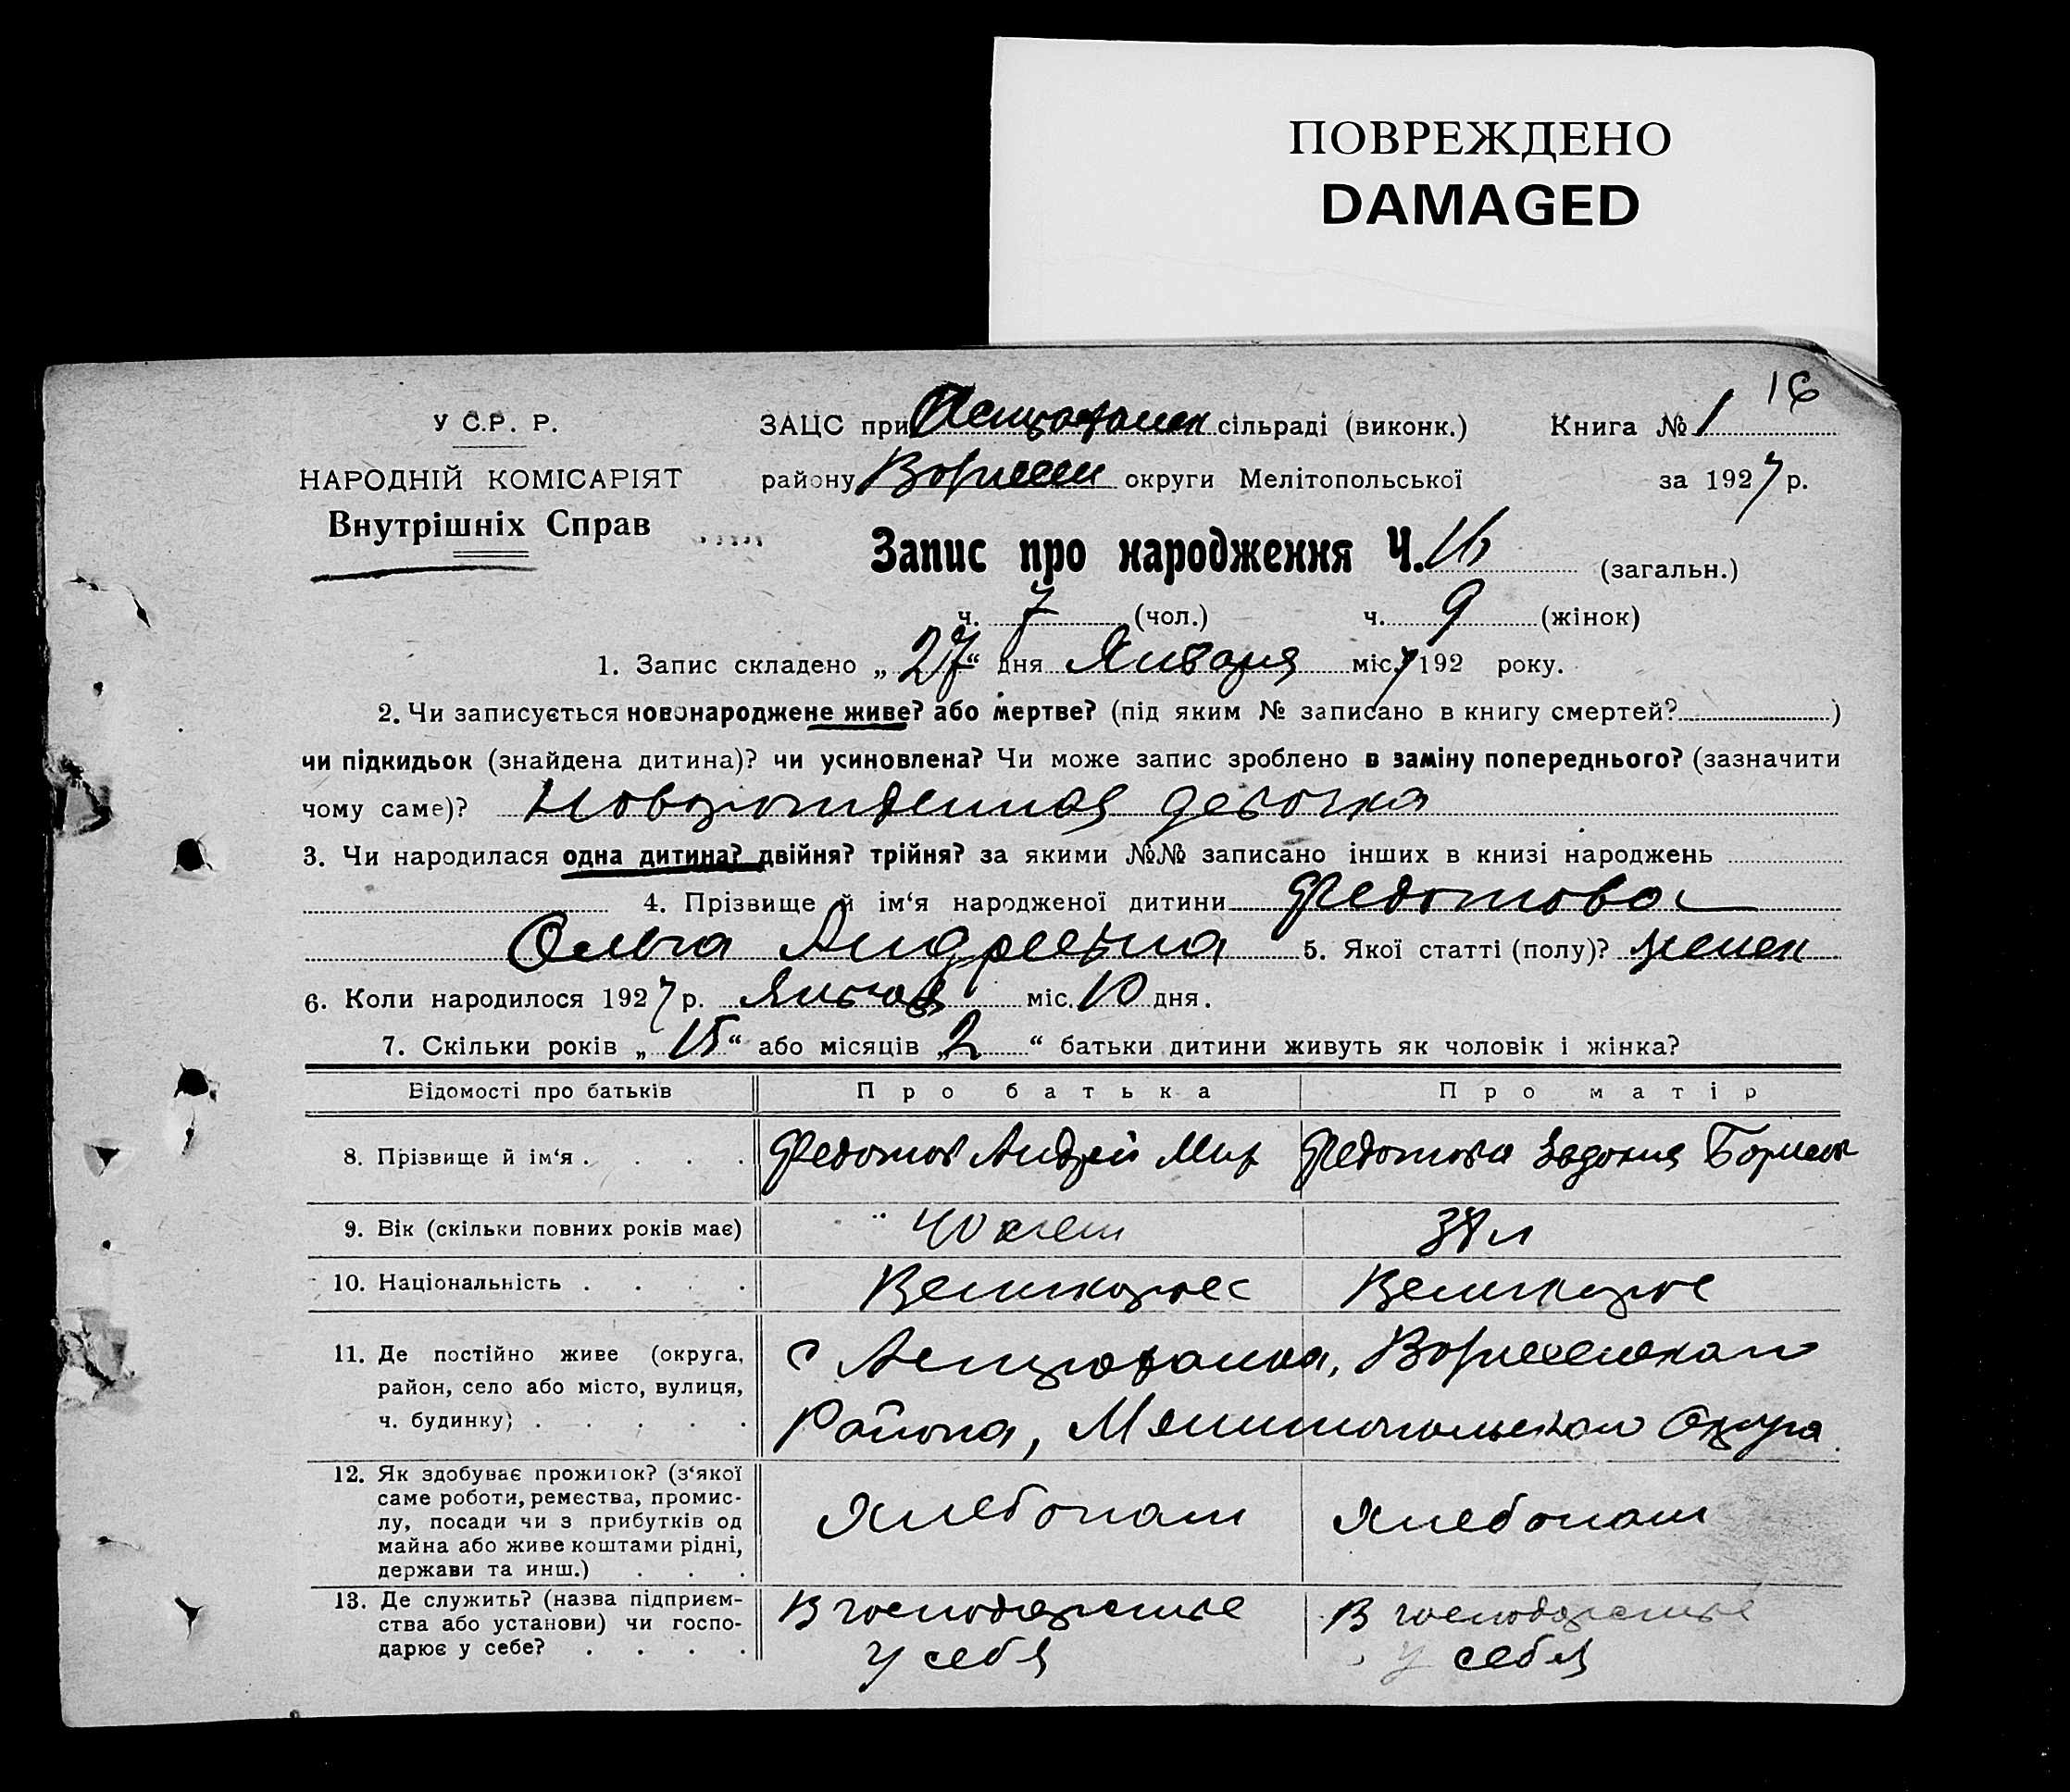 ПОВРЕЖДЕНО
DAMAGED
16
У С.Р. Р.
ЗАЦС при Астраханск сільраді (виконк.)
Книга № 1
НАРОДНІЙ КОМІСАРІЯТ
району округи Мелітопольської
за 1927 р.
Внутрішніх Справ
Запис про народження Ч. 16 (загальн.)
ч. 7 (чол.) ч. 9 (жінок)
1. Запис складено „27“ дня Января міс. 7 192 року.
2. Чи записується новонароджене живе? або мертве? (під яким № записано в книгу смертей? )
чи підкидьок (знайдена дитина)? чи усиновлена? Чи може запис зроблено в заміну попереднього? (зазначити
чому саме)? Новорожденная девочка
3. Чи народилася одна дитина? двійня? трійня? за якими №№ записано інших в книзі народжень
4. Прізвище й ім‘я народженої дитини Федотова
Ольга Андреевна 5. Якої статті (полу)? женск
6. Коли народилося 1927 р. Января міс. 10 дня.
7. Скільки років „15“ або місяців „2“ батьки дитини живуть як чоловік і жінка?
Відомості про батьків
Про батька
Про матір
8. Прізвище й ім‘я . . . .
Федотов Андрей Мир
Федотова Евдокия Борисов
9. Вік (скільки повних років має)
40 лет
38 л
10. Національність . . . .
Великорос
Великорос
11. Де постійно живе (округа,
район, село або місто, вулиця,
ч. будинку) . . . . .
с Астраханка,
Района, Мелитопольского Округа
12. Як здобуває прожиток? (з‘якої
саме роботи, ремества, промис-
лу, посади чи з прибутків од
майна або живе коштами рідні,
держави та инш.) . . .
Хлебопаш
Хлебопаш
13. Де служить? (назва підприєм-
ства або установи) чи госпо-
дарює у себе? . . . .
В господарстве
у себя
В господарстве
у себя